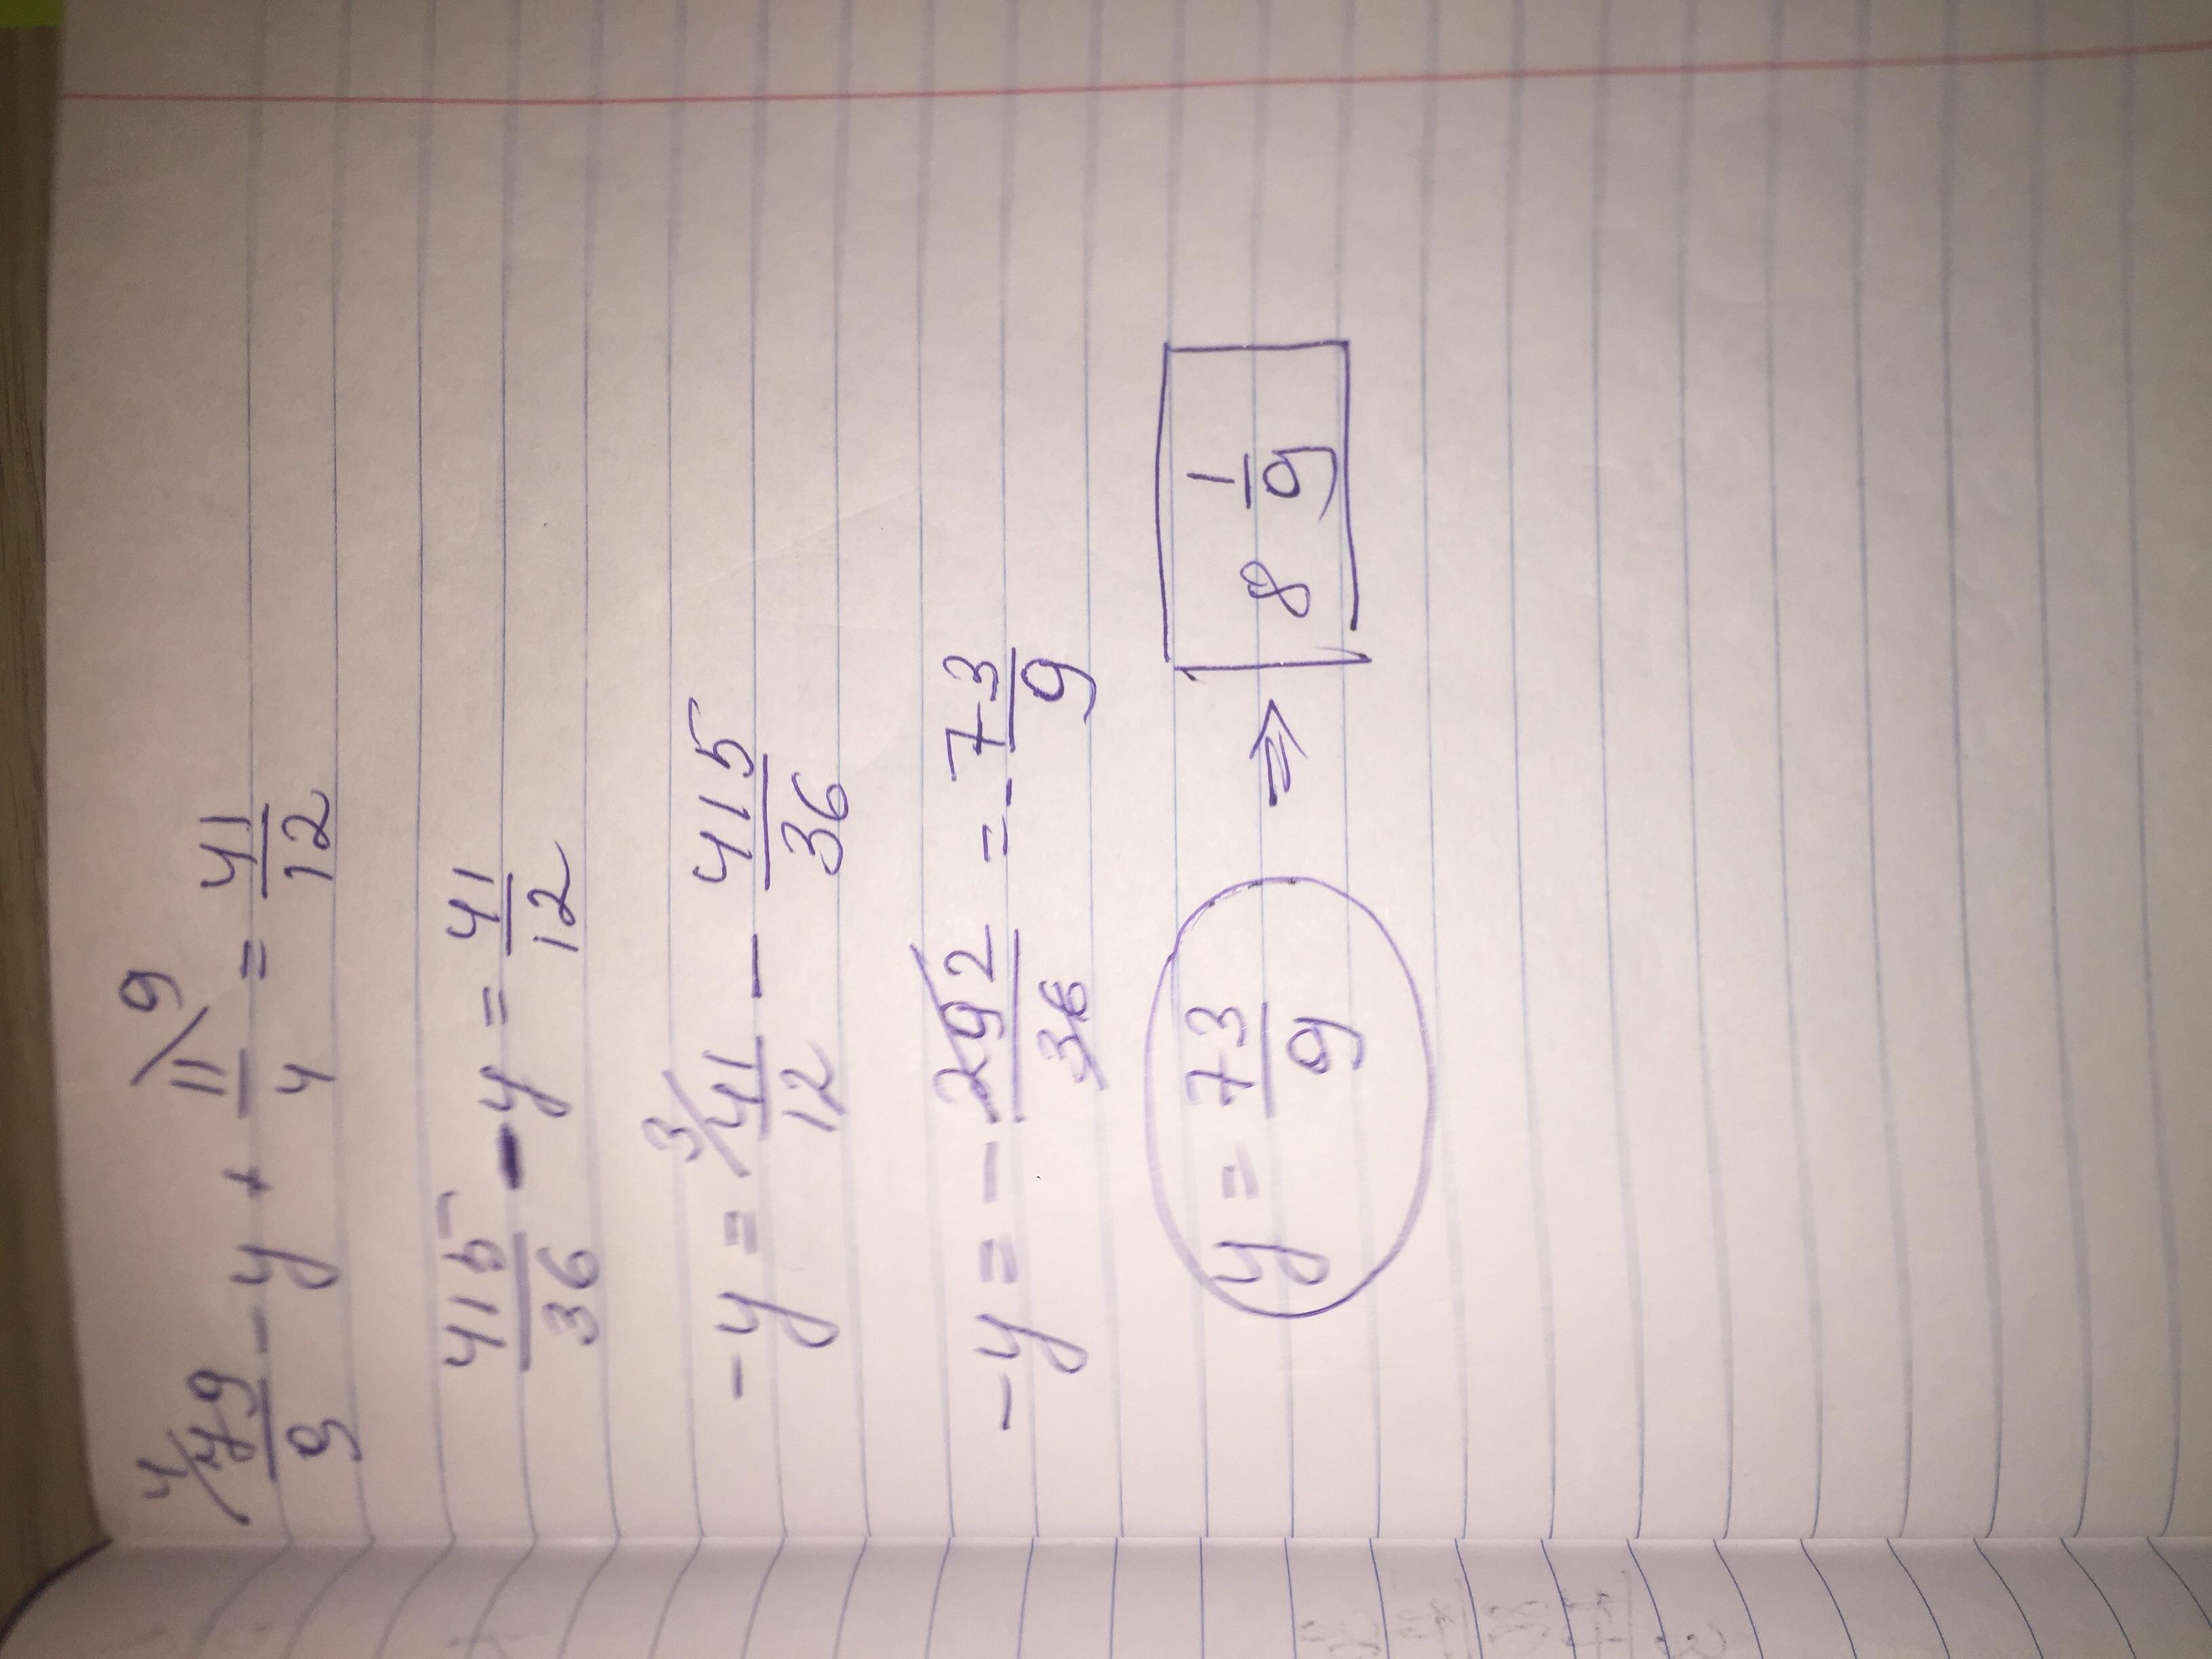 4/ 79/9 - y + 11/4 \9 = 41/12
415/36 - y = 41/12
-y = 3/ 41/12 - 415/36
-y = - 292/36 = - 73/9
y = 73/9 ⇒ 8 1/9